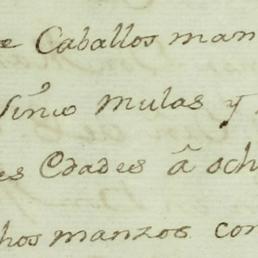 e Caballos man
Sinco mulas y
es Edades â och
hos manzos con